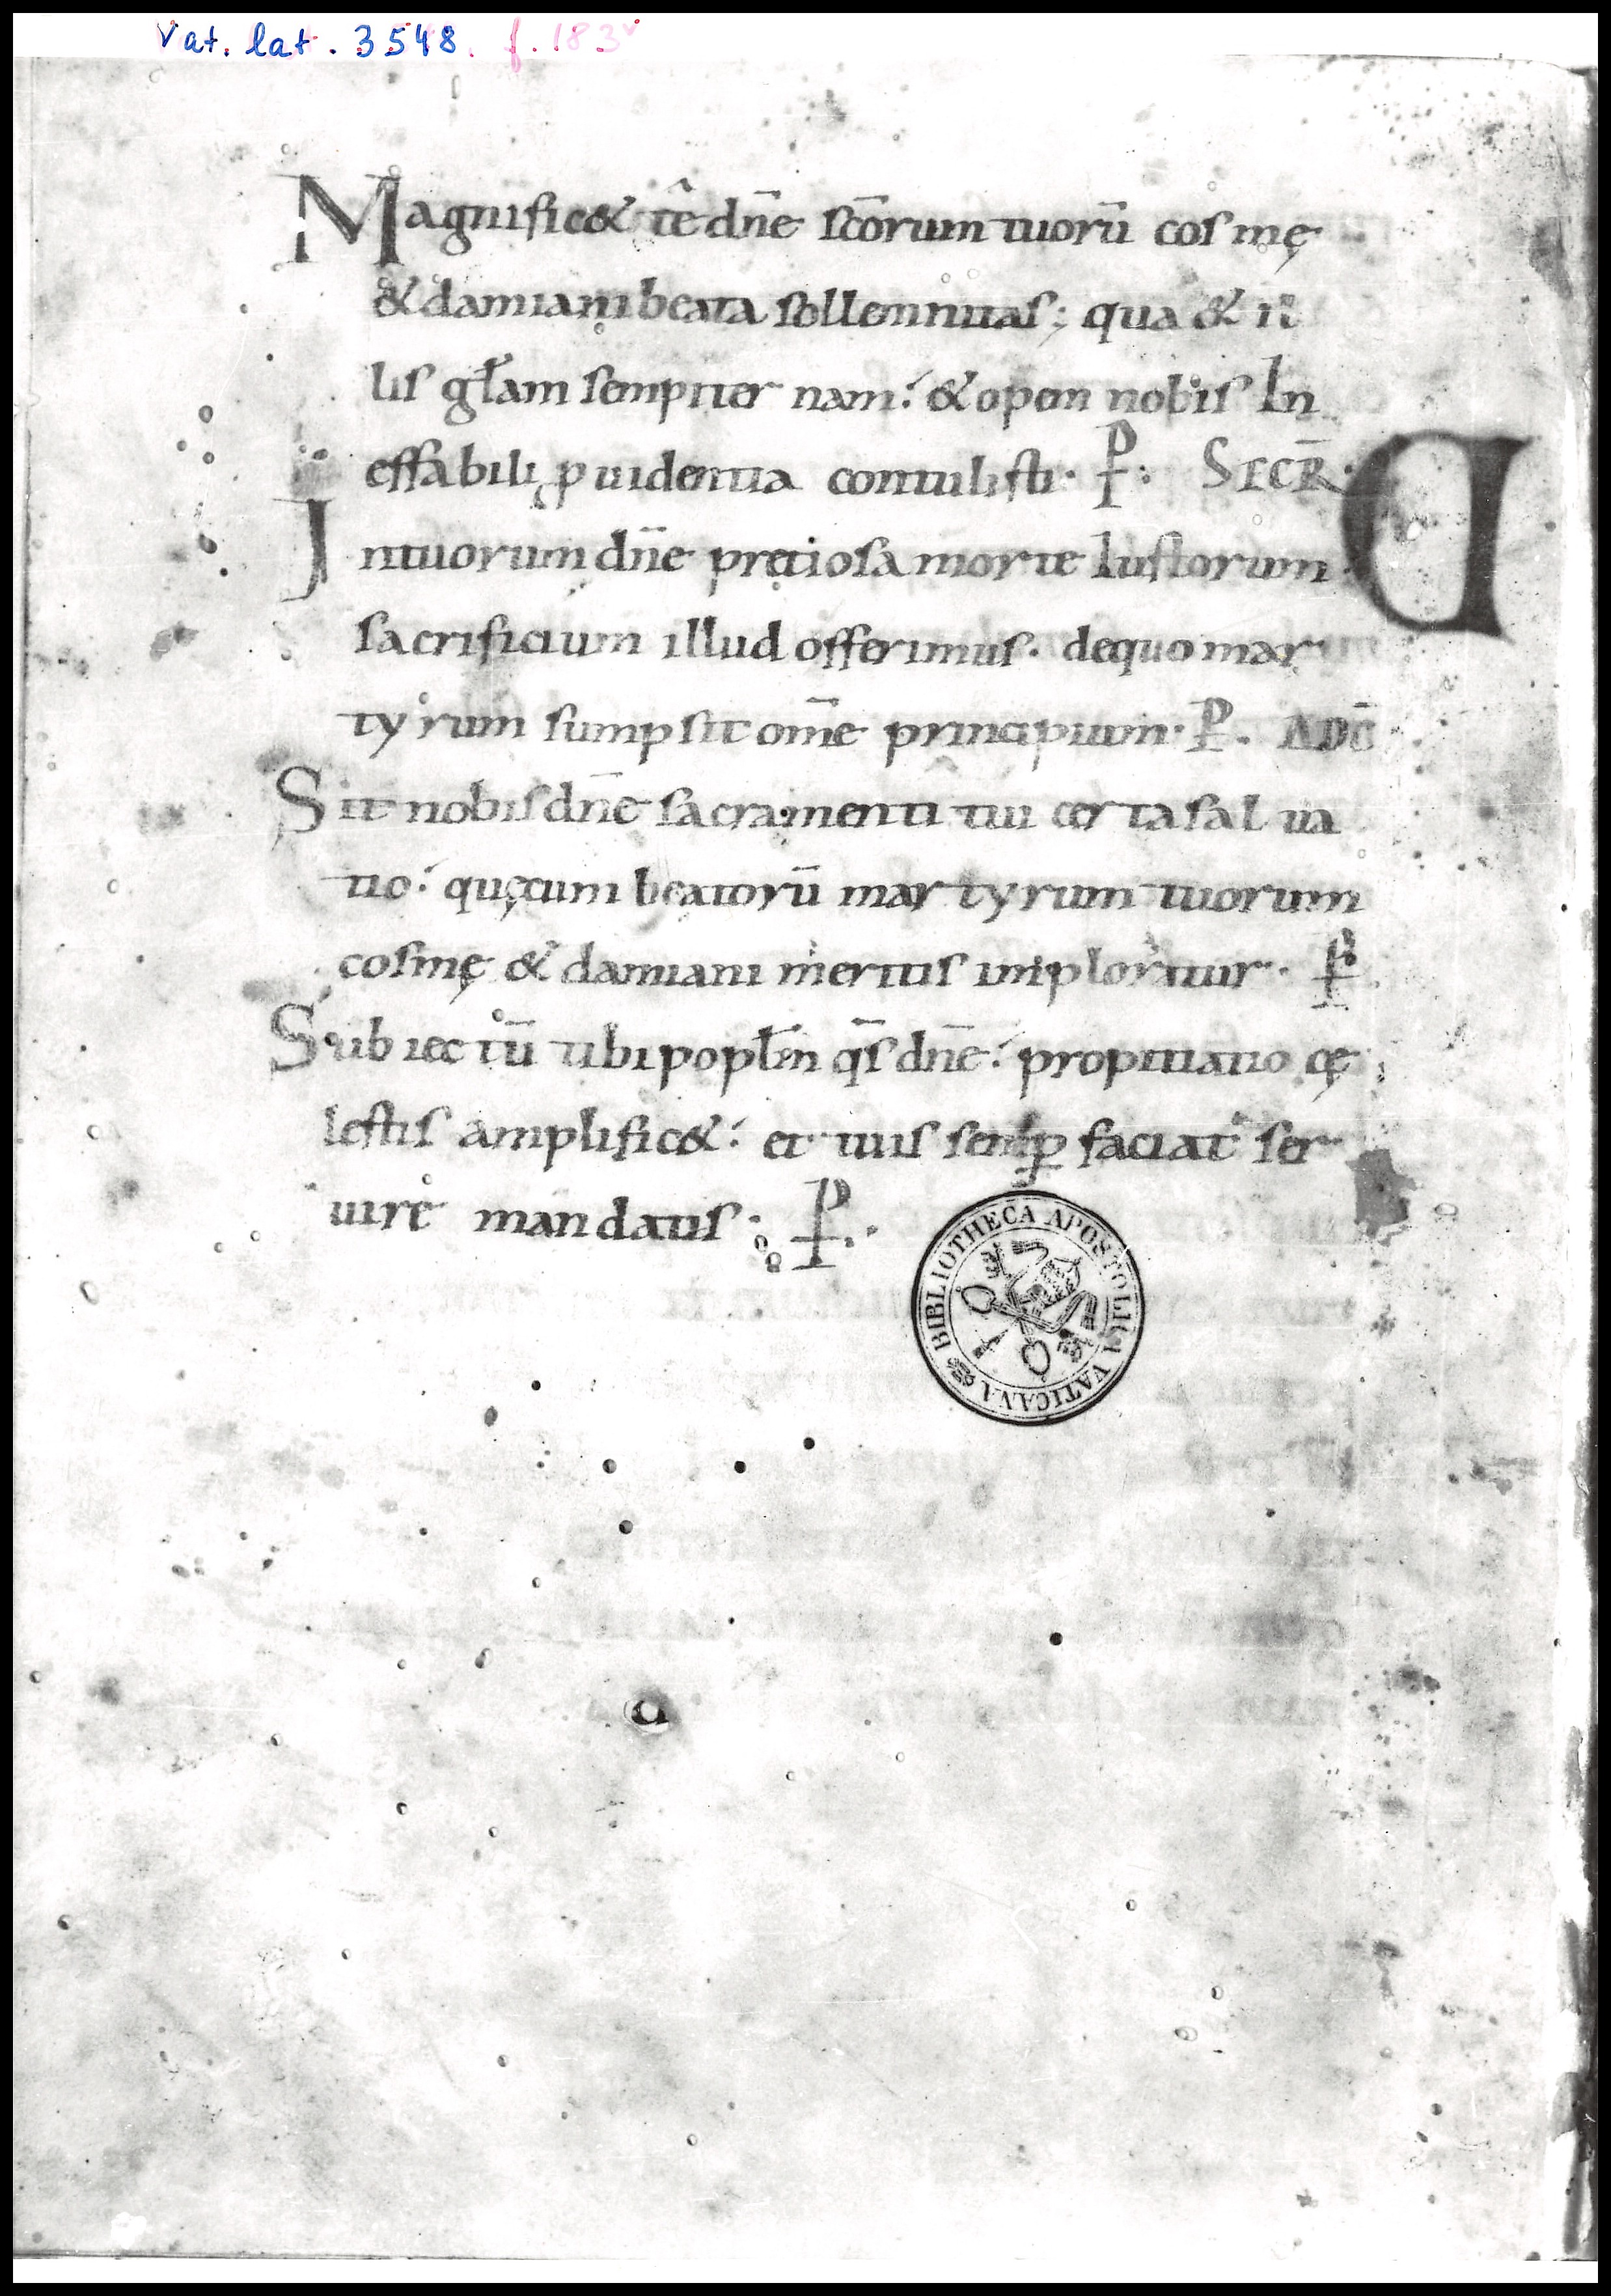 Vat. lat. 3548. f. 183v
Magnific& te dn̄e sc̄orum tuorū cosmę
& damiani beata sollemnitas; qua & il
lis gl̄am sempiternam. & opem nobis In
effabili ꝓuidentia contulisti. P: SECR̄.
Intuorum dn̄e pretiosa morte Iustorum
sacrificium illud offerimus. dequo mar
tyrum sumpsit om̄e principium. P. ADC̄
Sit nobis dn̄e sacramenti tui certa salua
tio. quęcum beatorū martyrum tuorum
cosmę & damiani meritis imploratur. P
Subiectū tibi popl̄m qs̄ dn̄e. propitiatio cę
lestis amplific&. et tuis semꝑ faciat ser
uire mandatis; P.
BIBLIOTHECA APOSTOLICA VATICANA